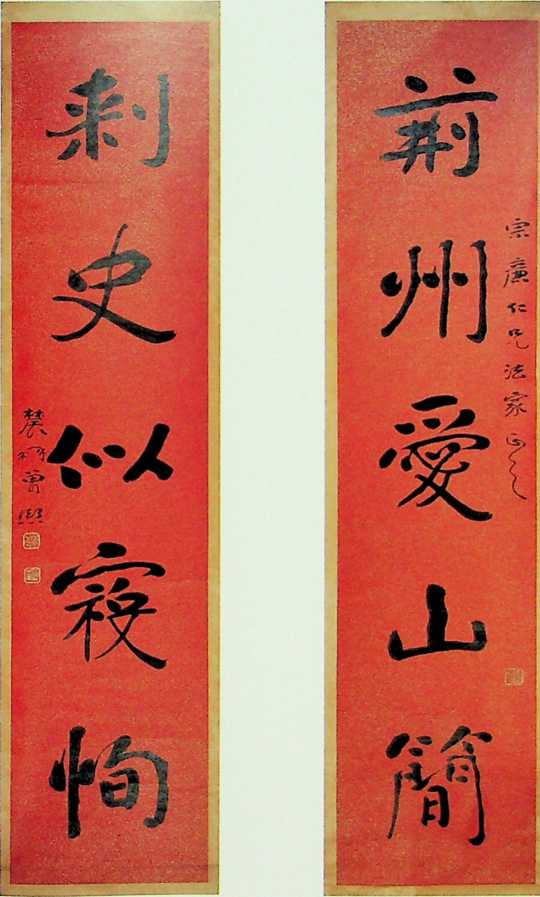 宗廉仁兄法家正之
荊州愛山簡
刺史似寇恂
農髯曾熙